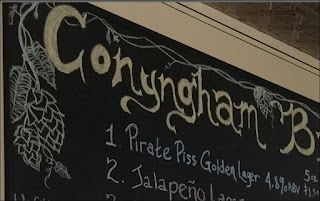 Conyngham B
1. Pirate Piss Golden Lager 4.8% ABV 5oz
2. Jalapeño